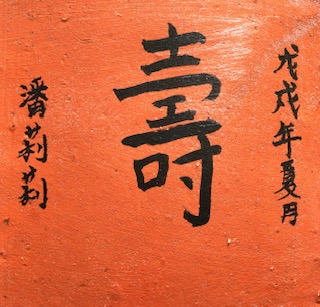 戊戌年夏月
壽
潘莉莉